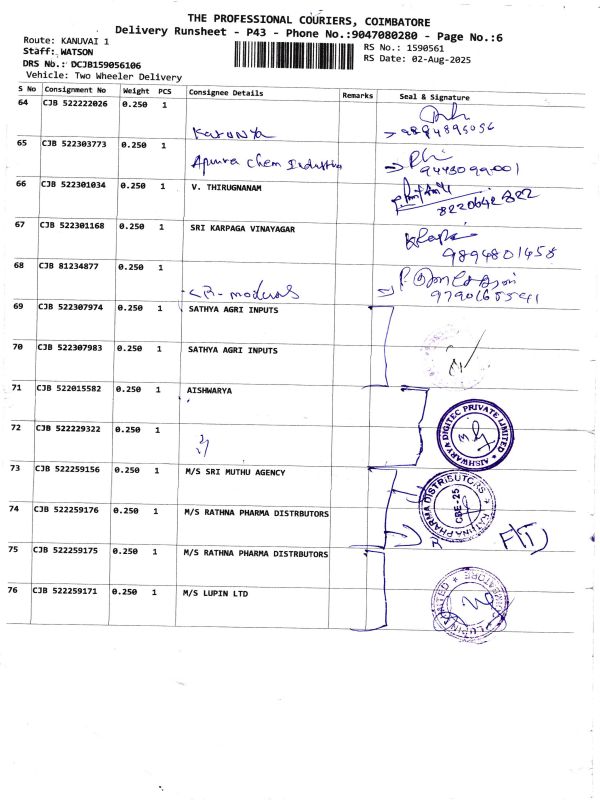 THE PROFESSIONAL COURIERS, COIMBATORE
Delivery Runsheet - P43 - Phone No.:9047080280 - Page No.:6
Route: KANUVAI 1
Staff: WATSON
DRS No.: DCJB159056106
Vehicle: Two Wheeler Delivery
RS No.: 1590561
RS Date: 02-Aug-2025
S No Consignment No Weight PCS Consignee Details Remarks Seal & Signature
64 CJB 522222026 0.250 1 Karunya 9894895056
65 CJB 522303773 0.250 1 Apurva Chem Industries 9443099001
66 CJB 522301034 0.250 1 V. THIRUGNANAM 8220642822
67 CJB 522301168 0.250 1 SRI KARPAGA VINAYAGAR 9894801458
68 CJB 81234877 0.250 1 9790165541
69 CJB 522307974 0.250 1 SATHYA AGRI INPUTS
70 CJB 522307983 0.250 1 SATHYA AGRI INPUTS
71 CJB 522015582 0.250 1 AISHWARYA
AISHWARYA DIGITEC PRIVATE LIMITED
72 CJB 522229322 0.250 1 "
73 CJB 522259156 0.250 1 M/S SRI MUTHU AGENCY
RATHNA PHARMA DISTRIBUTORS
CBE-25
74 CJB 522259176 0.250 1 M/S RATHNA PHARMA DISTRBUTORS
75 CJB 522259175 0.250 1 M/S RATHNA PHARMA DISTRBUTORS
76 CJB 522259171 0.250 1 M/S LUPIN LTD
LUPIN LIMITED * COIMBATORE